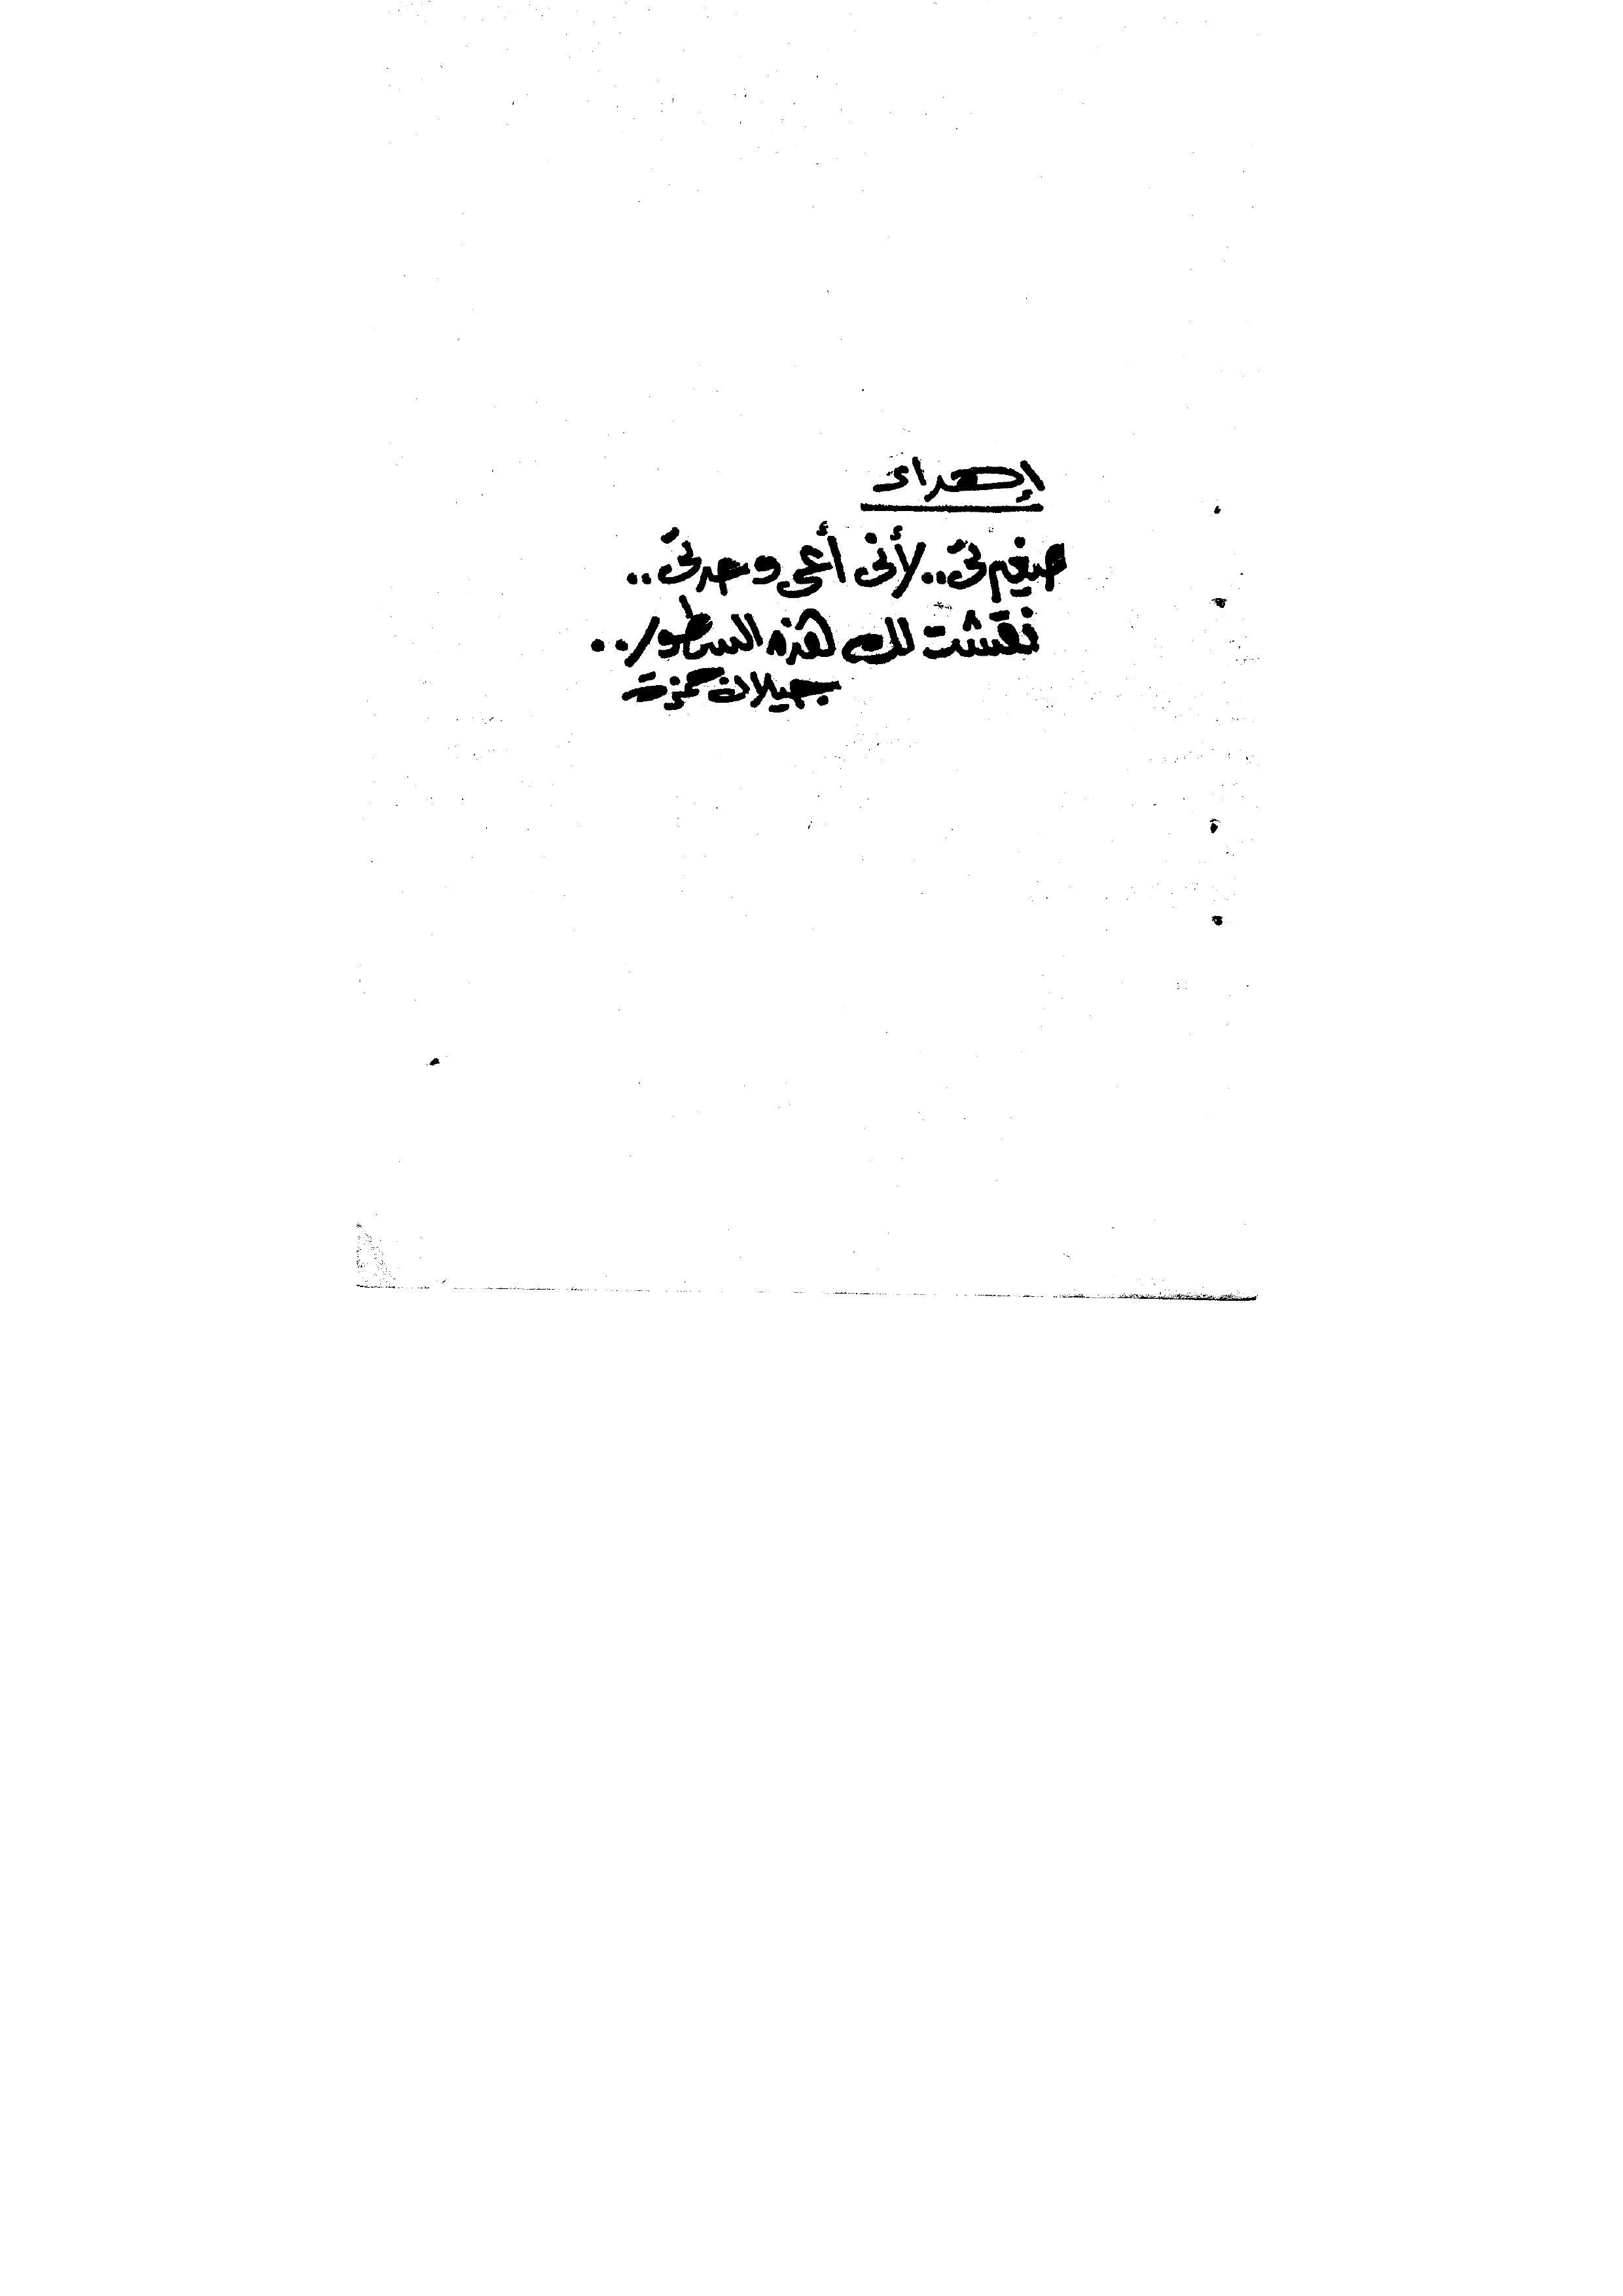 إهداء
صغيرتى.. لأنى أعى وحدتى..
نقشت لك هذه السطور..
جيلان حمزة